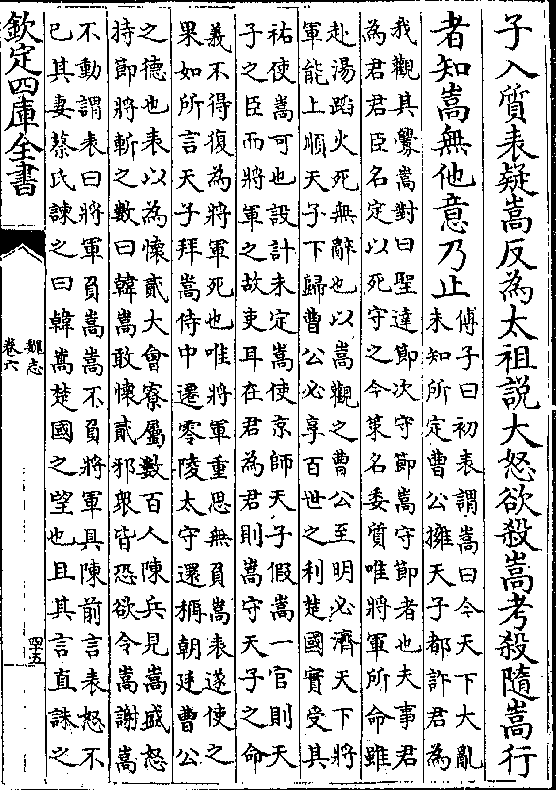 子入質表疑嵩反為太祖說大怒欲殺嵩考殺隨嵩行
者知嵩無他意乃止
傅子曰初表謂嵩曰今天下大亂
未知所定曹公擁天子都許君為
我觀其釁嵩對曰聖達節次守節嵩守節者也夫事君
為君君臣名定以死守之今策名委質唯將軍所命雖
赴湯蹈火死無辭也以嵩觀之曹公至明必濟天下將
軍能上順天子下歸曹公必享百世之利楚國實受其
祐使嵩可也設計未定嵩使京師天子假嵩一官則天
子之臣而將軍之故吏耳在君為君則嵩守天子之命
義不得復為將軍死也唯將軍重思無負嵩表遂使之
果如所言天子拜嵩侍中遷零陵太守還稱朝廷曹公
之德也表以為懷貳大會寮屬數百人陳兵見嵩盛怒
持節將斬之數曰韓嵩敢懷貳邪衆皆恐欲令嵩謝嵩
不動謂表曰將軍負嵩嵩不負將軍具陳前言表怒不
已其妻蔡氏諫之曰韓嵩楚國之望也且其言直誅之
欽定四庫全書
魏志
卷六
四十五